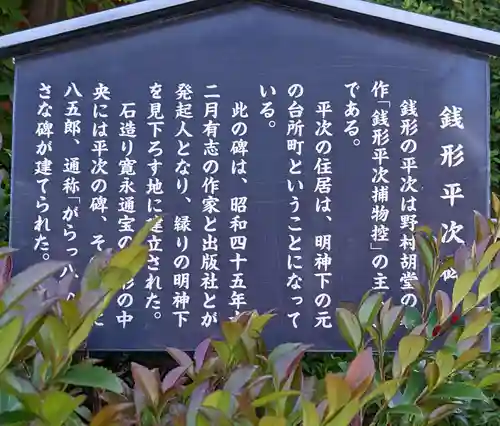 銭形平次の碑
銭形の平次は野村胡堂の
作「銭形平次捕物控」の主
である。
平次の住居は、明神下の元
の台所町ということになって
いる。
此の碑は、昭和四十五年十
二月有志の作家と出版社とが
発起人となり、縁りの明神下
を見下ろす地に建立された。
石造り寛永通宝の 形の中
央には平次の碑、そ
八五郎、通称「がらっ八」
さな碑が建てられた。